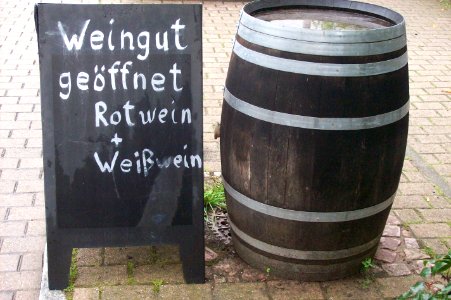 Weingut
geöffnet
Rotwein
+
Weißwein